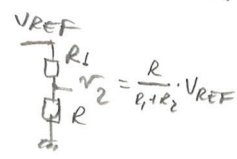 VREF
R1
V2 = R / R1+R2 · VREF
R